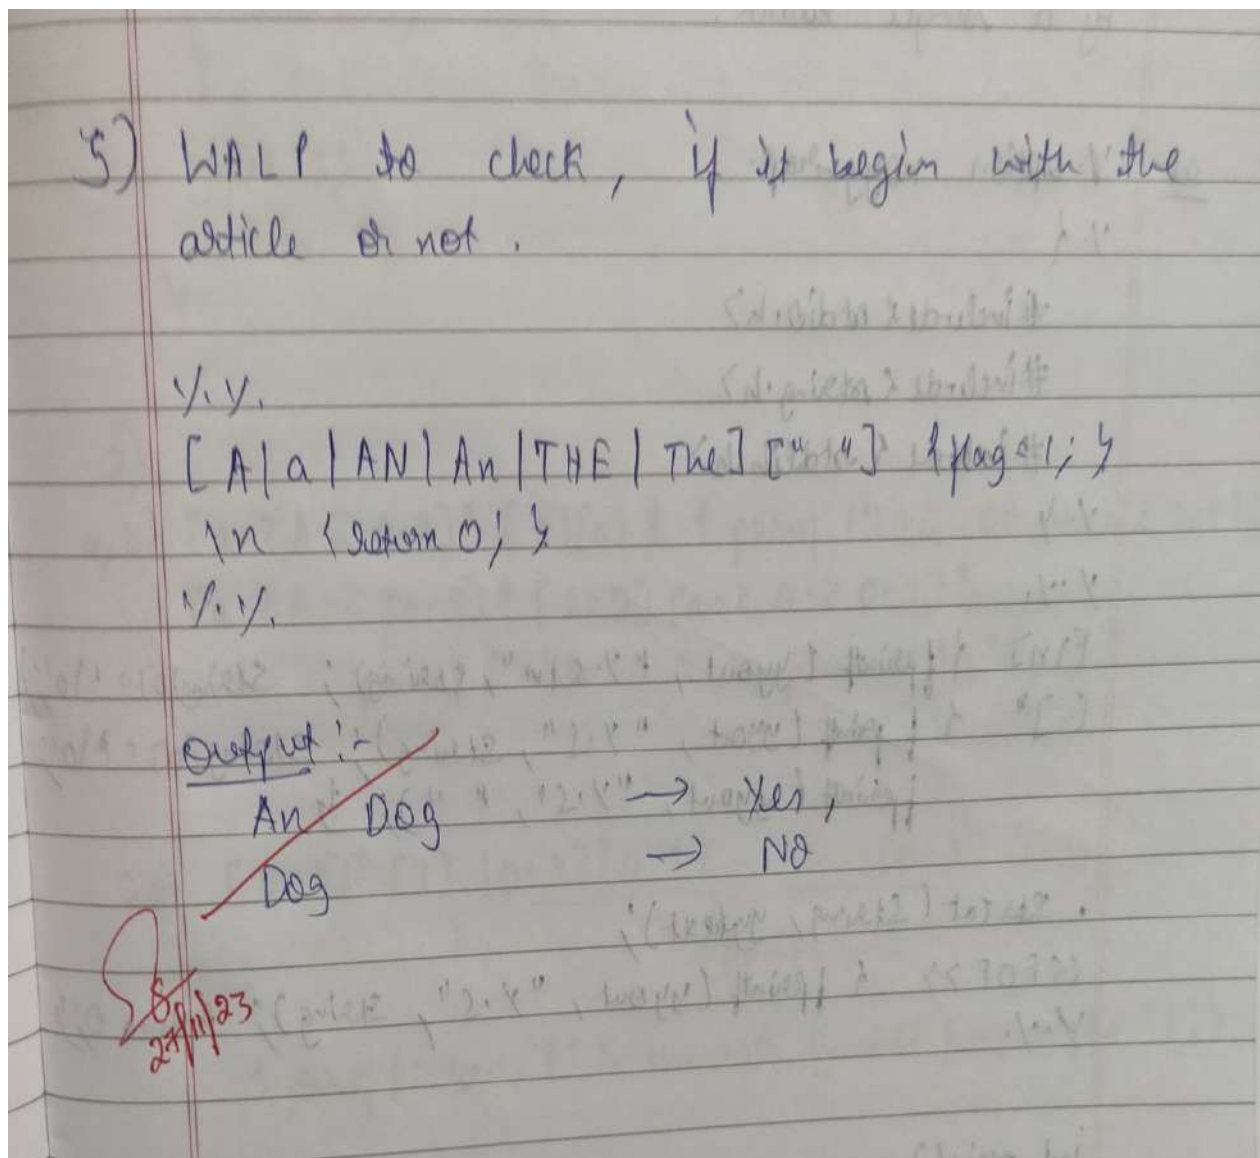 5) WALP to check, if it begin with the
article or not.
%%
[A|a|AN|An|THE|The][" "] {flag=1;}
\n {return 0;}
%%
Output :-
An Dog → Yes,
Dog → No
27/11/23